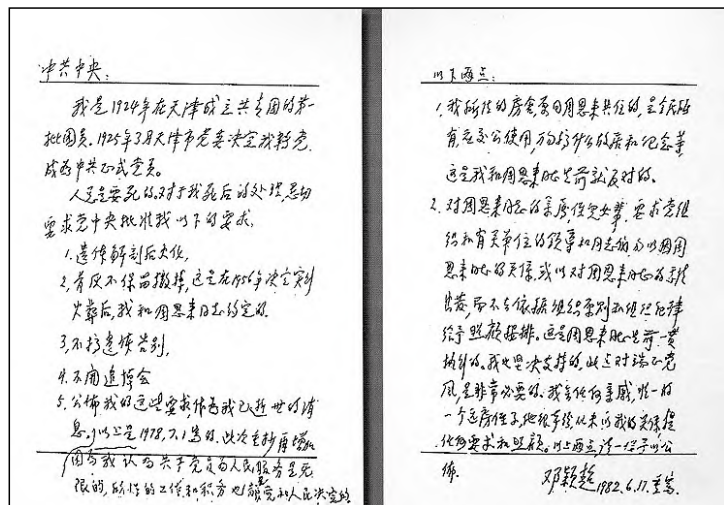 中共中央：
我是1924年在天津成立共青团的第一
批团员。1925年3月天津市党委决定我转党，
成为中共正式党员。
人总是要死的。对于我死后的处理，恳切
要求党中央批准我以下的要求，
1.遗体解剖后火化，
2.骨灰不保留撒掉，这是在1956年决定实行
火葬后，我和周恩来同志约定的。
3.不搞遗体告别，
4.不开追悼会
5.公布我的这些要求作为我已逝世的消
息。以上是1978.7.1写的。此次重抄再增加
因为我认为共产党员为人民服务是无
限的，所作的工作和职务也都是党和人民决定的
以下两点：
1.我所住的房舍原同周恩来共住的，是全民所
有，应交公使用，万勿搞什么故居和纪念等
这是我和周恩来同志生前就反对的。
2.对周恩来同志的亲属，侄儿女辈，要求党组
织和有关单位的领导和同志们勿以因周
恩来同志的关系，或以对周恩来同志的感情
出发，而不去依据组织原则和组织纪律
给予照顾安排。这是周恩来同志生前一贯
执行的。我也坚决支持的。此点对端正党
风，是非常必要的。我无任何亲戚，唯一的
一个远房侄子，他很本分从未以我的关系提
任何要求和照顾。以上两点请一并予以公
布。
邓颖超 1982.6.17.重写。